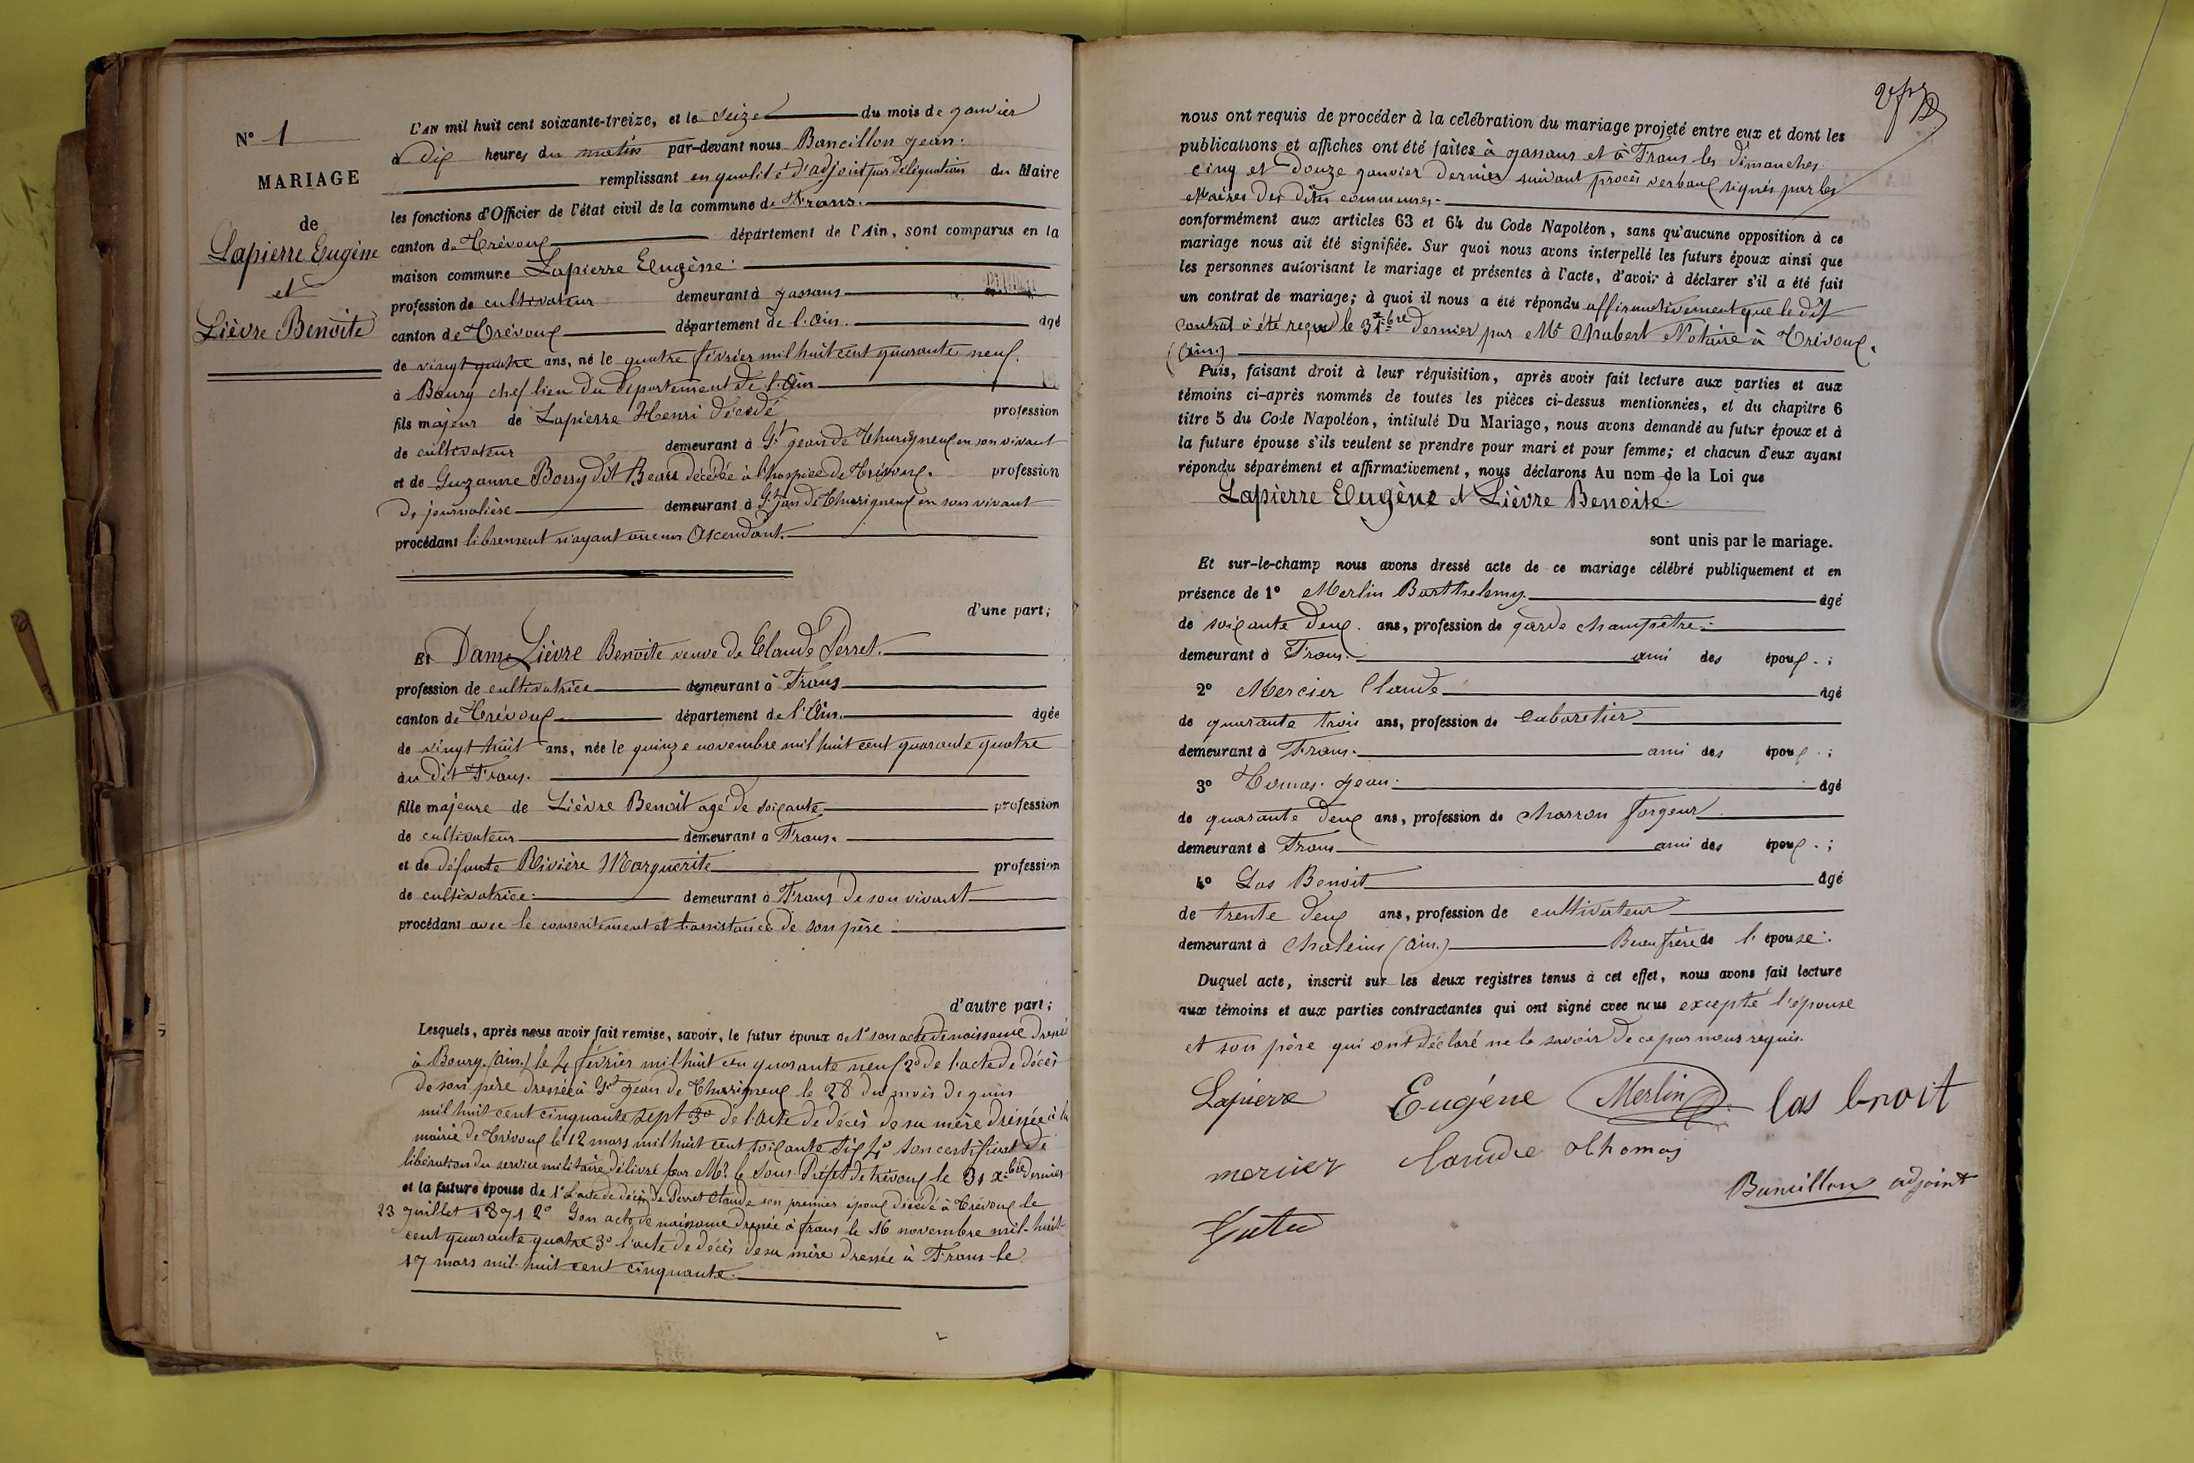 N° 1
MARIAGE
de
Lapierre Eugène
et
Lièvre Benoite
L'AN mil huit cent soixante-treize, et le seize du mois de janvier
à dix heures du matin par-devant nous Bancillon jean.
remplissant en qualité d'adjoint par délégation du Maire
les fonctions d'Officier de l'état civil de la commune de Frans.
canton de Trévoux département de l'Ain, sont comparus en la
maison commune Lapierre Eugène.
profession de cultivateur demeurant à jassans
canton de Trévoux département de l'Ain. âgé
de vingt quatre ans, né le quatre février mil huit cent quarante neuf.
à Bourg chef lieu du département de l'Ain
fils majeur de Lapierre Henri décédé profession
de cultivateur demeurant à St jean de Thurigneux en son vivant
et de Suzanne dit décédée à l'hospice de Trévoux. profession
de journalière demeurant à St jean de Thurigneux en son vivant
procédant librement n'ayant aucun Ascendant.
d'une part;
Et Dame Lièvre Benoite veuve de Claude Perret.
profession de cultivatrice demeurant à Frans
canton de Trévoux département de l'Ain. âgée
de vingt huit ans, née le quinze novembre mil huit cent quarante quatre
au dit Frans.
fille majeure de Lièvre Benoit agé de soixante profession
de cultivateur demeurant à Frans.
et de défunte Rivière Marguerite profession
de cultivatrice. demeurant à Frans de son vivant
procédant avec le consentement et l'assistance de son père
d'autre part;
Lesquels, après nous avoir fait remise, savoir, le futur époux de 1° son acte de naissance dressé
à Bourg (ain.) le 4 février mil huit cen quarante neuf 2° de l'acte de décès
de son père dressée à St jean de Thurigneux le 28 du mois de juin
mil huit cent cinquante sept 3° de l'acte de décès de sa mère dressée à la
mairie de Trévoux le 12 mars mil huit cent soixante six 4° son certificat de
libération du service militaire délivré par Mr. le Sous-Préfet de trévoux le 31 xbre dernier
et la future épouse de 1° l'acte de décès de Perret Claude son premier époux décédé à Trévoux le
23 juillet 1871 2° Son acte de naissance dressée à frans le 16 novembre mil-huit-
cent quarante quatre 3° l'acte de décès de sa mère dressée à Frans le
17 mars mil-huit cent cinquante.
nous ont requis de procéder à la célébration du mariage projeté entre eux et dont les
publications et affiches ont été faites à jassans et à Frans les dimanches
cinq et douze janvier dernier suivant procès verbaux signés par les
Maires des dites communes.
conformément aux articles 63 et 64 du Code Napoléon, sans qu'aucune opposition à ce
mariage nous ait été signifiée. Sur quoi nous avons interpellé les futurs époux ainsi que
les personnes autorisant le mariage et présentes à l'acte, d'avoir à déclarer s'il a été fait
un contrat de mariage; à quoi il nous a été répondu affirmativement que le dit
Contrat a été reçu le 31 xbre dernier par Me Chabert Notaire à Trévoux.
(Ain.)
Puis, faisant droit à leur réquisition, après avoir fait lecture aux parties et aux
témoins ci-après nommés de toutes les pièces ci-dessus mentionnées, et du chapitre 6
titre 5 du Code Napoléon, intitulé Du Mariage, nous avons demandé au futur époux et à
la future épouse s'ils veulent se prendre pour mari et pour femme; et chacun d'eux ayant
répondu séparément et affirmativement, nous déclarons Au nom de la Loi que
Lapierre Eugène et Lièvre Benoite.
sont unis par le mariage.
Et sur-le-champ nous avons dressé acte de ce mariage célébré publiquement et en
présence de 1° Merlin Barthelemy. âgé
de soixante deux. ans, profession de garde champêtre.
demeurant à Frans. ami des époux.;
2° Mercier Claude âgé
de quarante trois ans, profession de Cabaretier
demeurant à Frans. ami des époux.;
3° Tomas jean. âgé
de quarante deux ans, profession de charron forgeur
demeurant à Frans ami des époux.;
4° Las Benoit âgé
de trente deux ans, profession de cultivateur
demeurant à Chaleins (ain.) Beau frère de l'épouse.
Duquel acte, inscrit sur les deux registres tenus à cet effet, nous avons fait lecture
aux témoins et aux parties contractantes qui ont signé avec nous excepté l'épouse
et son père qui ont déclaré ne le savoir de ce par nous requis.
Lapierre Eugéne Merlin las benoit
mercier Claude thomas
Bancillon adjoint